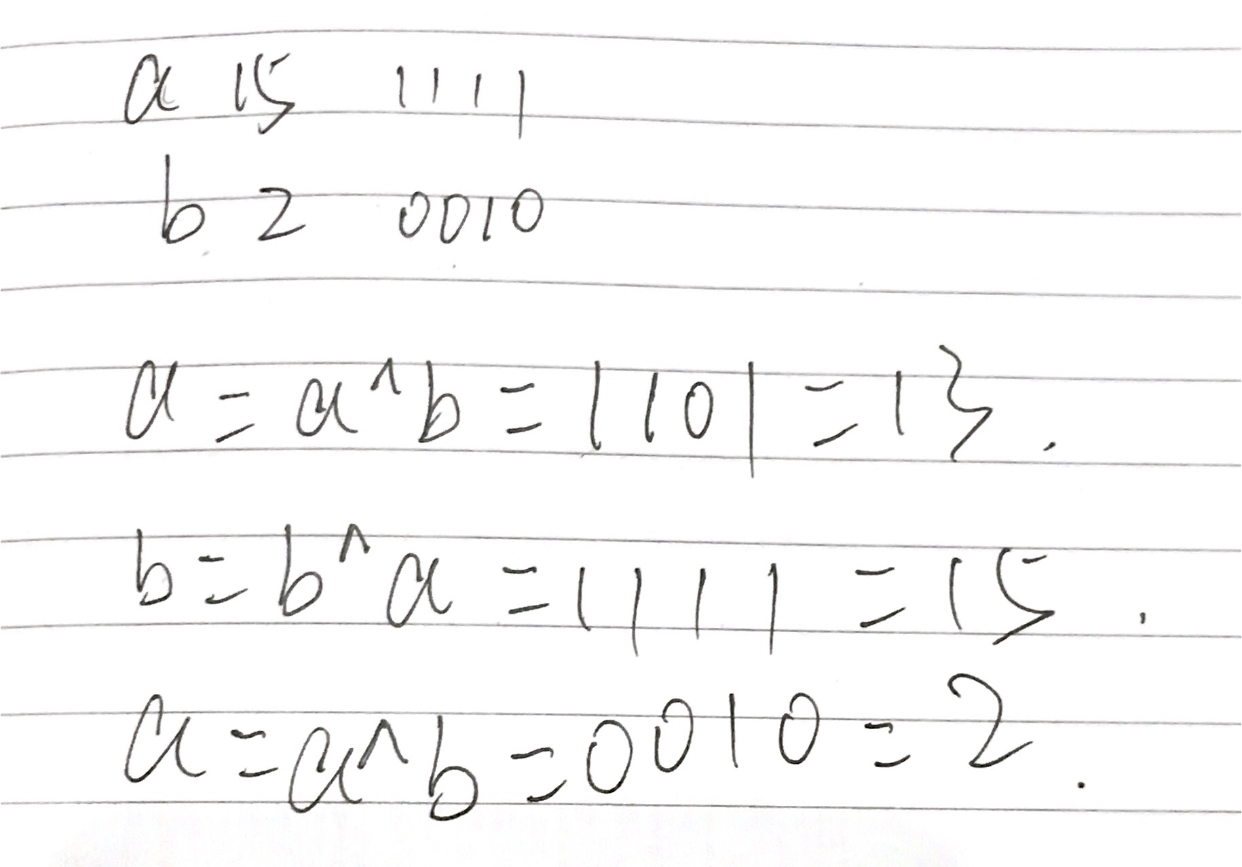 a 15 1111
b 2 0010
a = a^b = 1101 = 13.
b = b^a = 1111 = 15.
a = a^b = 0010 = 2.